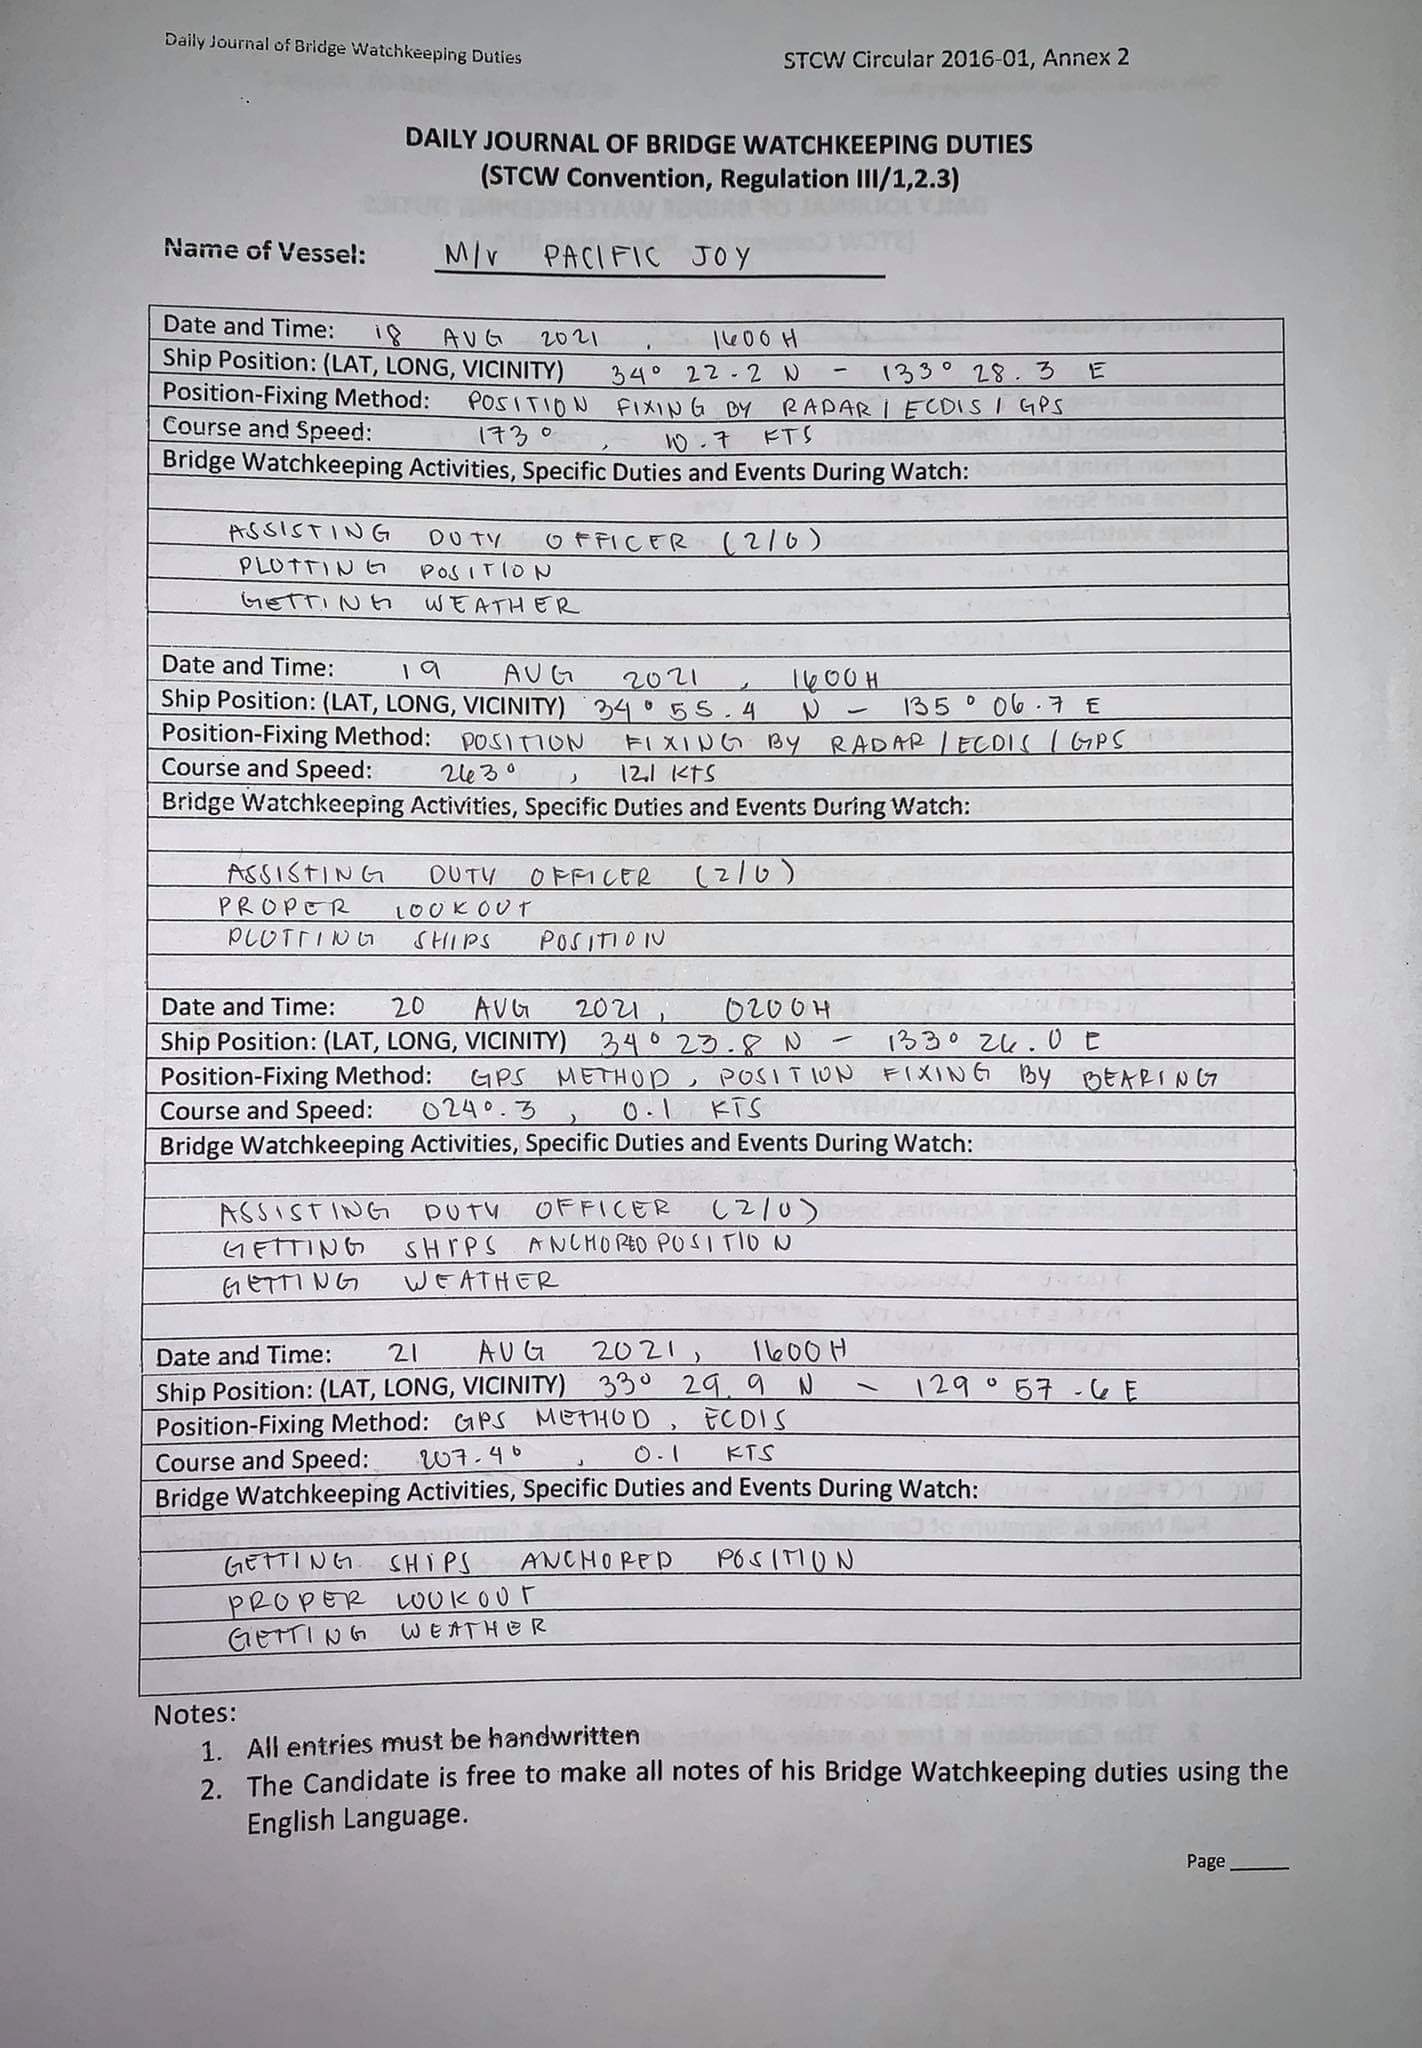 Daily Journal of Bridge Watchkeeping Duties
STCW Circular 2016-01, Annex 2
DAILY JOURNAL OF BRIDGE WATCHKEEPING DUTIES
(STCW Convention, Regulation III/1,2.3)
Name of Vessel: M/V PACIFIC JOY
Date and Time: 18 AUG 2021, 1600H
Ship Position: (LAT, LONG, VICINITY) 34° 22.2 N - 133° 28.3 E
Position-Fixing Method: POSITION FIXING BY RADAR / ECDIS / GPS
Course and Speed: 173°, 10.7 KTS
Bridge Watchkeeping Activities, Specific Duties and Events During Watch:
ASSISTING DUTY OFFICER (2/O)
PLOTTING POSITION
GETTING WEATHER
Date and Time: 19 AUG 2021, 1600H
Ship Position: (LAT, LONG, VICINITY) 34° 55.4 N - 135° 06.7 E
Position-Fixing Method: POSITION FIXING BY RADAR / ECDIS / GPS
Course and Speed: 263°, 12.1 KTS
Bridge Watchkeeping Activities, Specific Duties and Events During Watch:
ASSISTING DUTY OFFICER (2/O)
PROPER LOOKOUT
PLOTTING SHIPS POSITION
Date and Time: 20 AUG 2021, 0200H
Ship Position: (LAT, LONG, VICINITY) 34° 23.8 N - 133° 26.0 E
Position-Fixing Method: GPS METHOD, POSITION FIXING BY BEARING
Course and Speed: 024°.3, 0.1 KTS
Bridge Watchkeeping Activities, Specific Duties and Events During Watch:
ASSISTING DUTY OFFICER (2/O)
GETTING SHIPS ANCHORED POSITION
GETTING WEATHER
Date and Time: 21 AUG 2021, 1600H
Ship Position: (LAT, LONG, VICINITY) 33° 29.9 N - 129° 57.6 E
Position-Fixing Method: GPS METHOD, ECDIS
Course and Speed: 207.4°, 0.1 KTS
Bridge Watchkeeping Activities, Specific Duties and Events During Watch:
GETTING SHIPS ANCHORED POSITION
PROPER LOOKOUT
GETTING WEATHER
Notes:
1. All entries must be handwritten
2. The Candidate is free to make all notes of his Bridge Watchkeeping duties using the
English Language.
Page